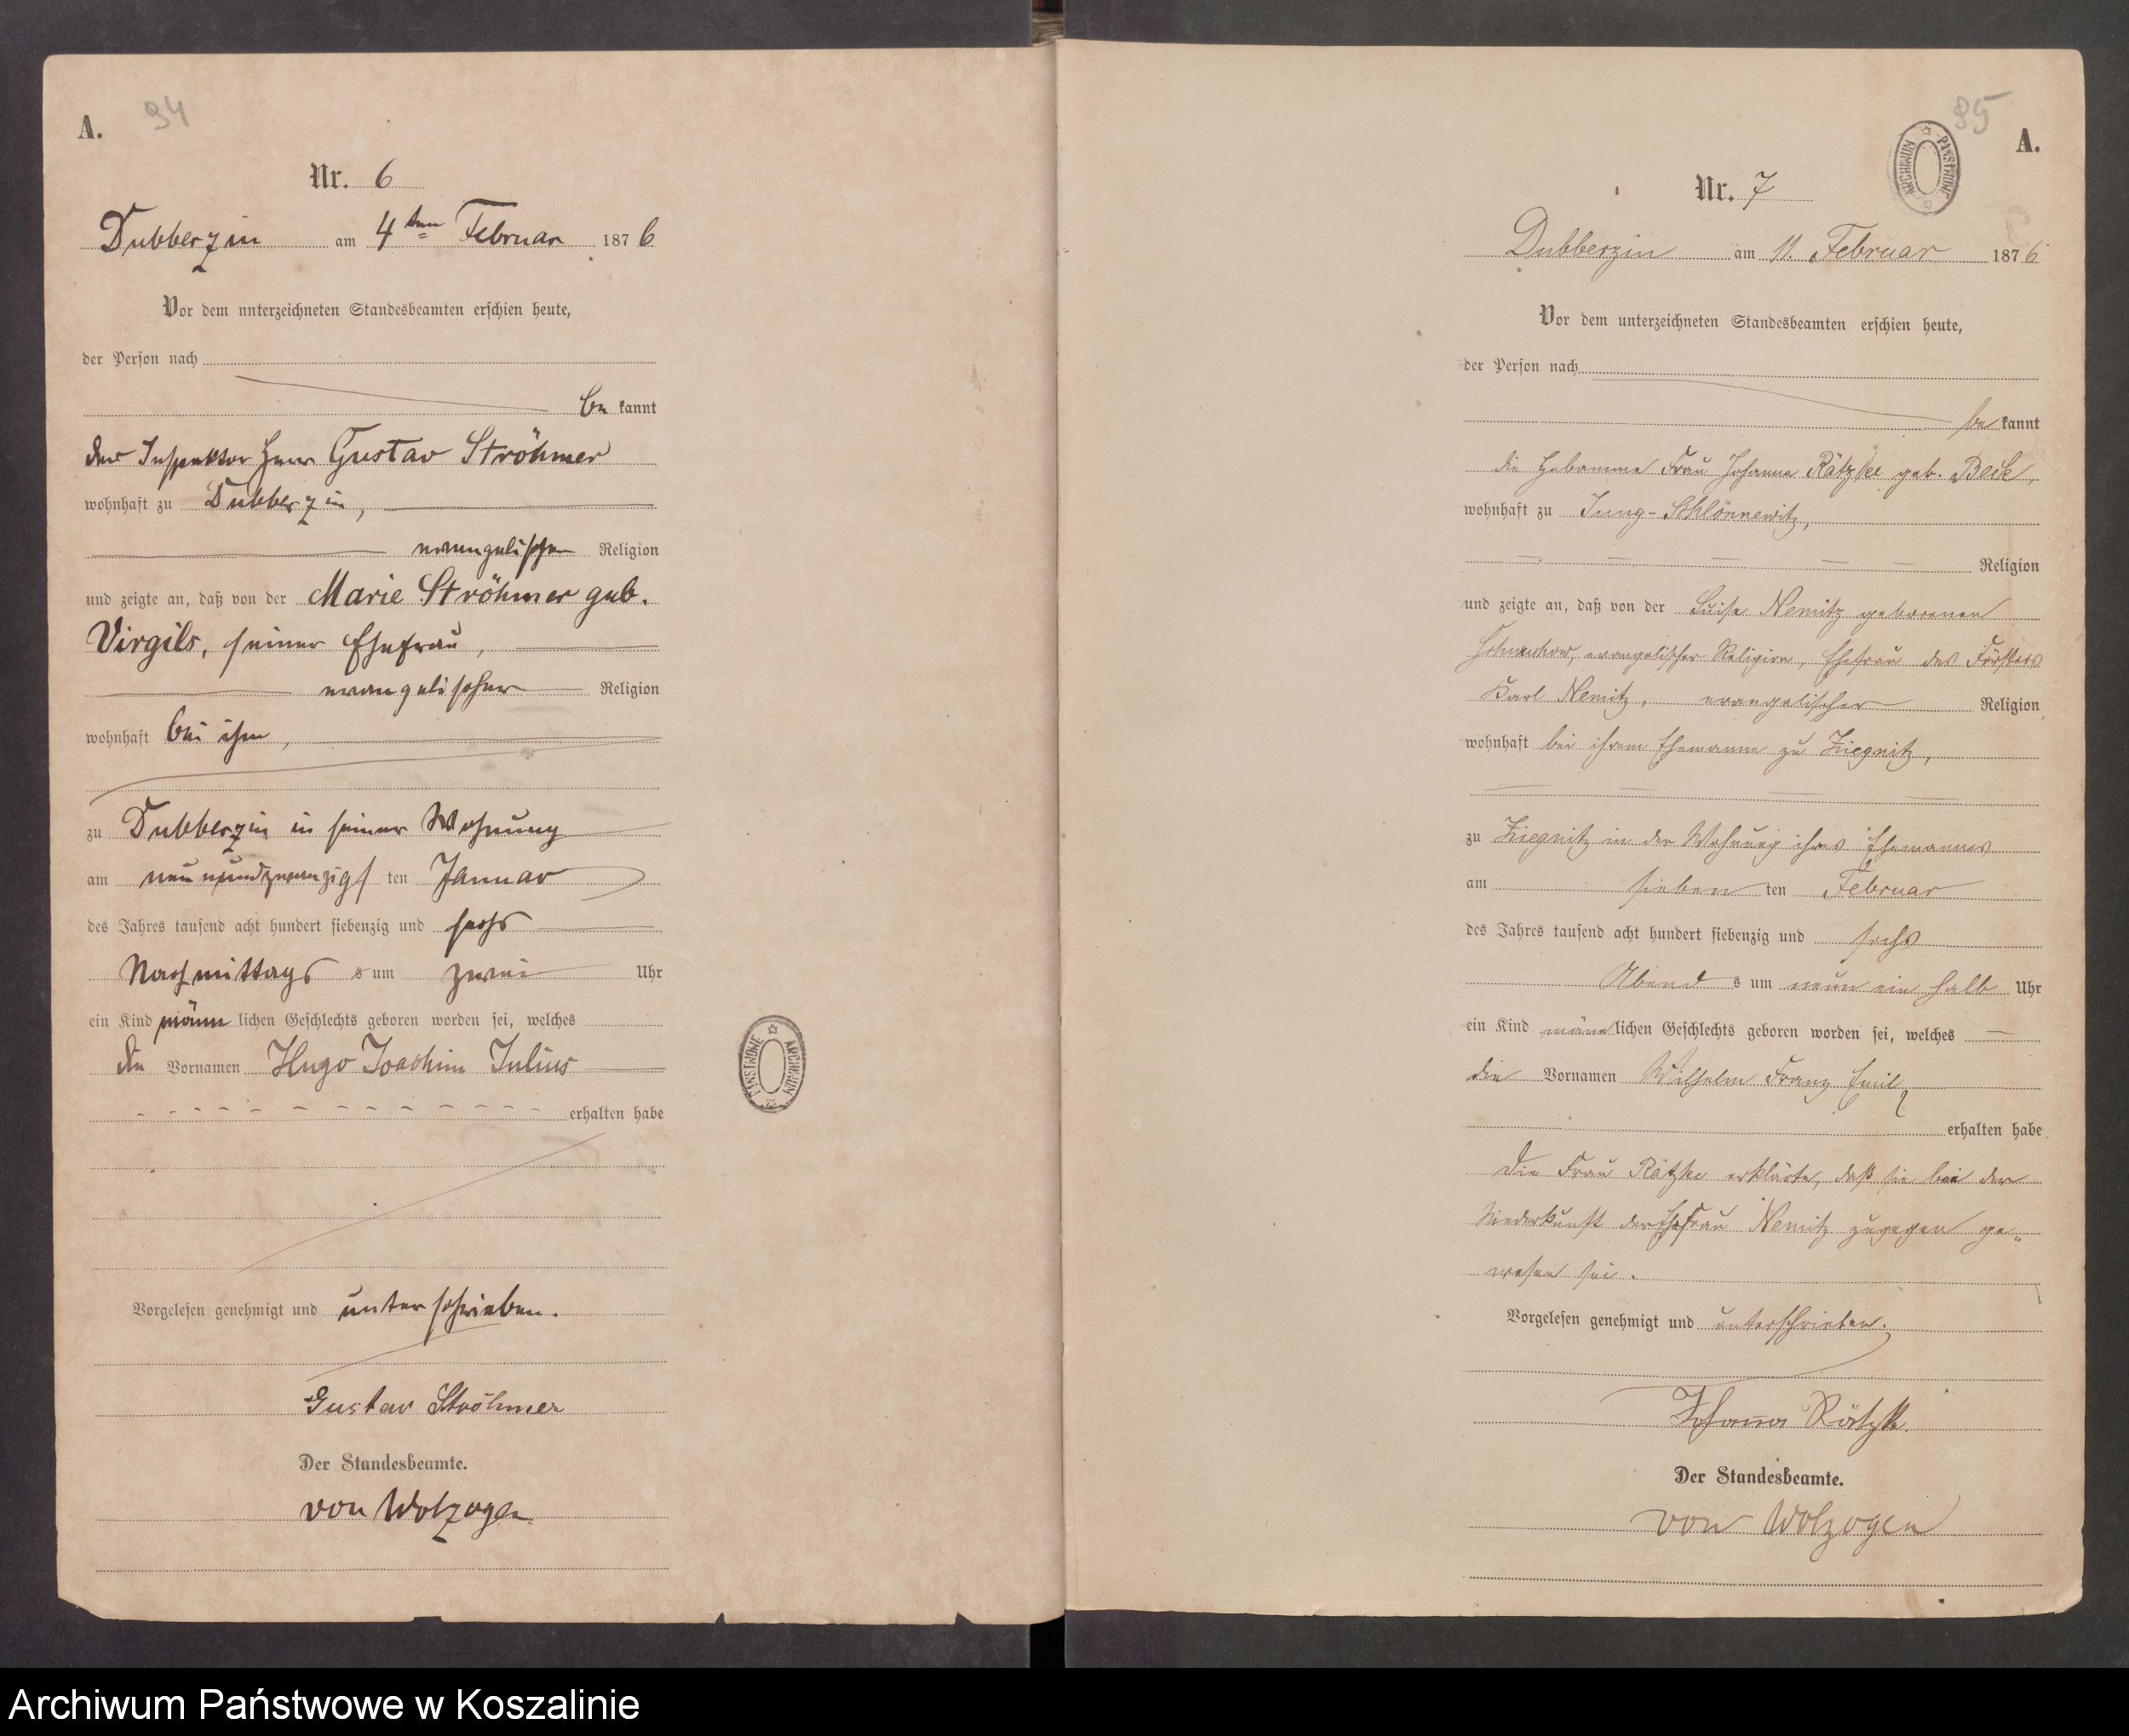 A. 94
Nr. 6
Dubberzin am 4ten Februar 1876
Vor dem unterzeichneten Standesbeamten erschien heute,
der Person nach
be kannt
der Inspektor Herr Gustav Ströhmer
wohnhaft zu Dubberzin,
evangelischer Religion
und zeigte an, daß von der Marie Ströhmer geb.
Virgils, seiner Ehefrau,
evangelischer Religion
wohnhaft bei ihm,
zu Dubberzin in seiner Wohnung
am neunundzwanzigs ten Januar
des Jahres tausend acht hundert siebenzig und sechs
Nachmittags s um zwei Uhr
ein Kind männ lichen Geschlechts geboren worden sei, welches
die Vornamen Hugo Joachim Julius
erhalten habe
Vorgelesen genehmigt und unterschrieben.
Gustav Ströhmer
Der Standesbeamte.
von Wolzogen
ARCHIWUM PAŃSTWOWE
95 A.
ARCHIWUM PAŃSTWOWE
Nr. 7
Dubberzin am 11. Februar 1876
Vor dem unterzeichneten Standesbeamten erschien heute,
der Person nach
be kannt
die Hebamme Frau Johanna Rätzke geb. Beck,
wohnhaft zu Jung-Schlönnewitz,
Religion
und zeigte an, daß von der Luise Nemitz geborenen
evangelischer Religion, Ehefrau des Försters
Karl Nemitz, evangelischer Religion
wohnhaft bei ihrem Ehemanne zu Ziegnitz,
zu Ziegnitz in der Wohnung ihres Ehemannes
am sieben ten Februar
des Jahres tausend acht hundert siebenzig und sechs
Abend s um neun ein halb Uhr
ein Kind männ lichen Geschlechts geboren worden sei, welches
die Vornamen Wilhelm Franz Emil
erhalten habe
Die Frau Rätzke erklärte, daß sie bei der
Niederkunft der Ehefrau Nemitz zugegen ge„
wesen sei.
Vorgelesen genehmigt und unterschrieben.
Johanna Rätzke.
Der Standesbeamte.
von Wolzogen
Archiwum Państwowe w Koszalinie